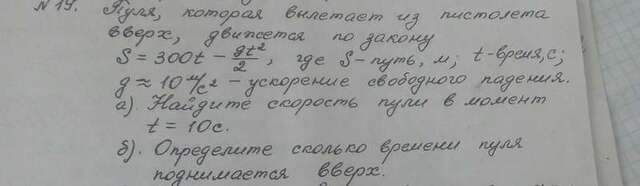 № 19. Пуля, которая вылетает из пистолета
вверх, движется по закону
S = 300t − gt²/2, где S-путь, м; t-время, с;
g ≈ 10 м/с² - ускорение свободного падения.
а). Найдите скорость пули в момент
t = 10с.
б). Определите сколько времени пуля
поднимается вверх.